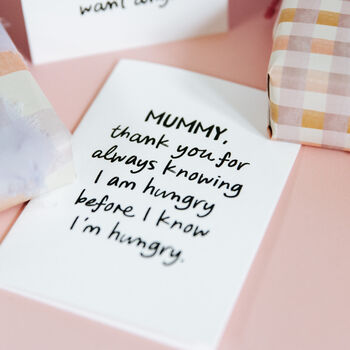 want any
MUMMY,
thank you for
always knowing
I am hungry
before I know
I'm hungry.